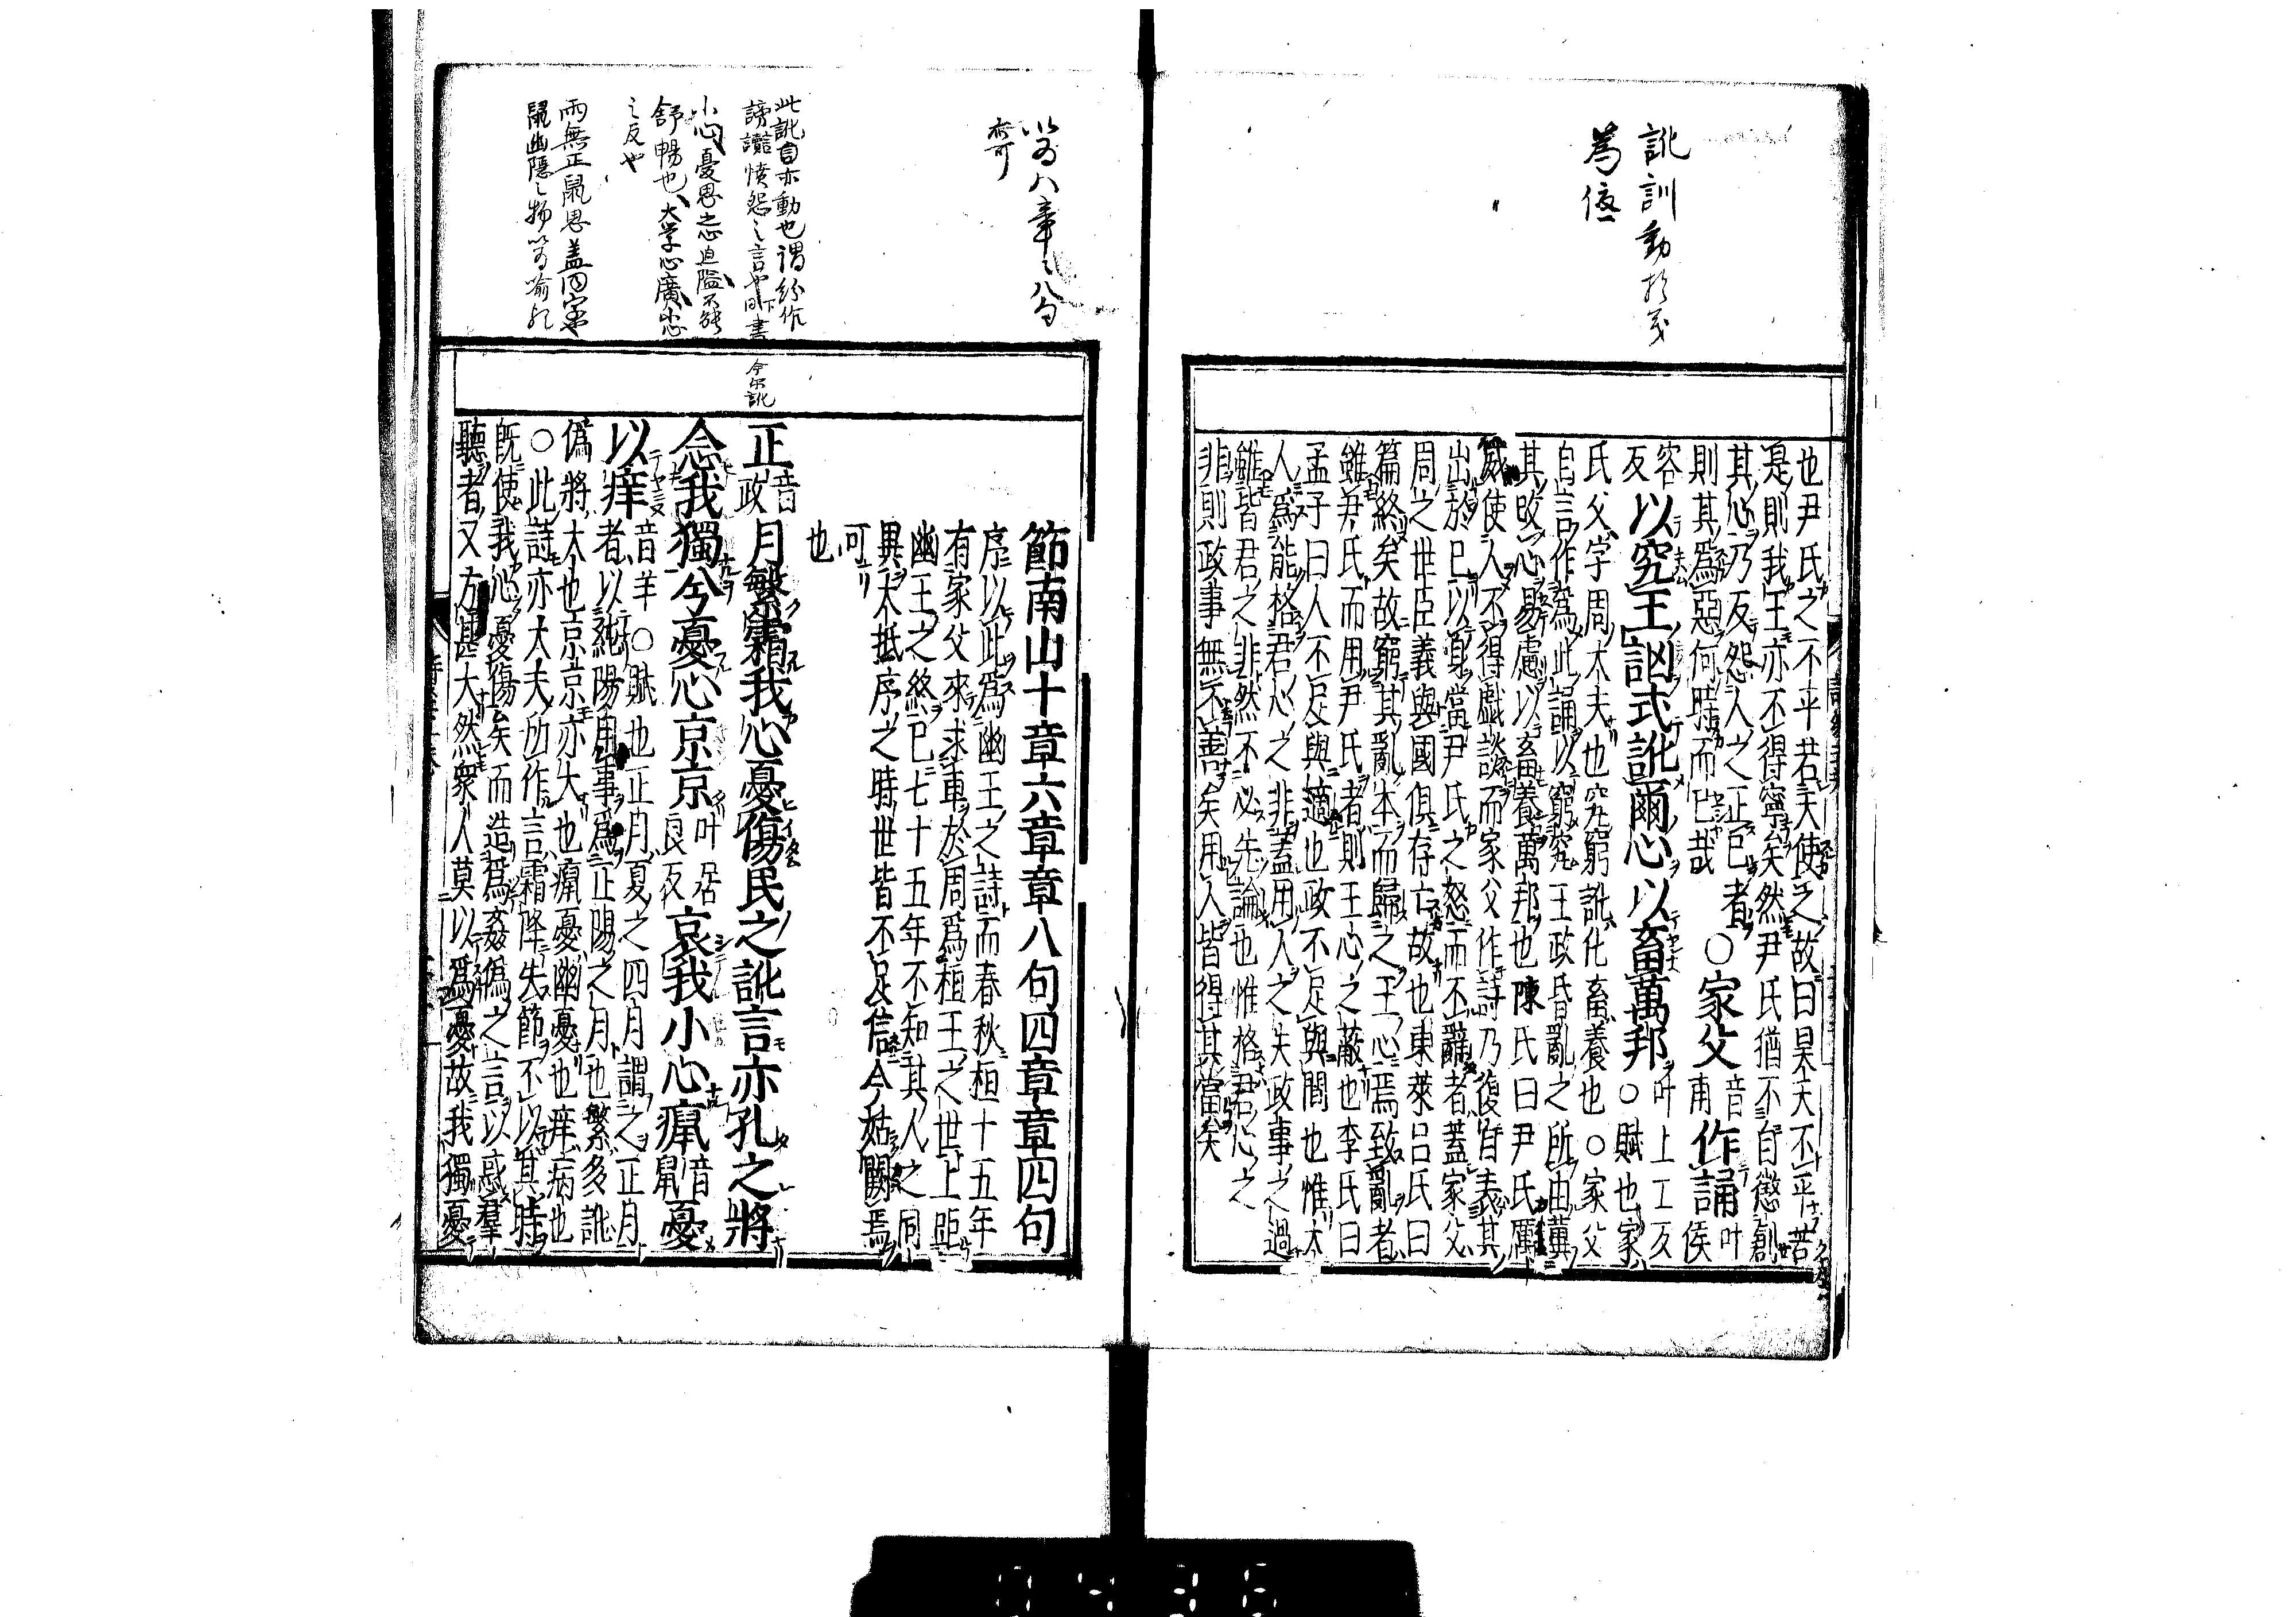 訛訓動於義
為優
也尹氏之不平若天使之故曰昊天不平若
是則我王亦不得寧矣然尹氏猶不自懲創
其心乃反怨人之正已者
則其為惡何時而已哉
○家父音甫作誦叶侯
容反以究王訩式訛爾心以畜萬邦叶上工反○賦也家
氏父字周大夫也究窮訛化畜養也○家父
自言作為此誦以窮究王政昏亂之所由冀
其改心易慮以畜養萬邦也陳氏曰尹氏厲
威使人不得戲談而家父作詩乃復自表其
出於已以身當尹氏之怒而不辭者蓋家父
周之世臣義與國俱存亡故也東萊呂氏曰
篇終矣故窮其亂本而歸之王心焉致亂者
雖尹氏而用尹氏者則王心之蔽也李氏曰
孟子曰人不足與適也政不足與間也惟大
人為能格君心之非蓋用人之失政事之過
雖皆君之非然不必先論也惟格君心之
非則政事無不善矣用人皆得其當矣
以為八章章八句
亦可
節南山十章六章章八句四章章四句
序以此為幽王之詩而春秋桓十五年
有家父來求車於周為桓王之世上距
幽王之終已七十五年不知其人之同
異大抵序之時世皆不足信今姑闕焉
可
也
此訛自亦動也謂紛作
謗讟憤怨之言也下同書
今尔訛
小心憂思之心迫隘不能
舒暢也大学心廣小心
之反也
雨無正鼠思蓋同字也
鼠幽隱之物以為喻耳
正音政月繁霜我心憂傷民之訛言亦孔之將
念我獨兮憂心京京叶居良反哀我小心癙音鼠憂
以痒音羊○賦也正月夏之四月謂之正月
者以純陽用事為正陽之月也繁多訛
偽將大也京京亦大也癙憂幽憂也痒病也
○此詩亦大夫所作言霜降失節不以其時
既使我心憂傷矣而造為姦偽之言以惑羣
聽者又方甚大然衆人莫以為憂故我獨憂